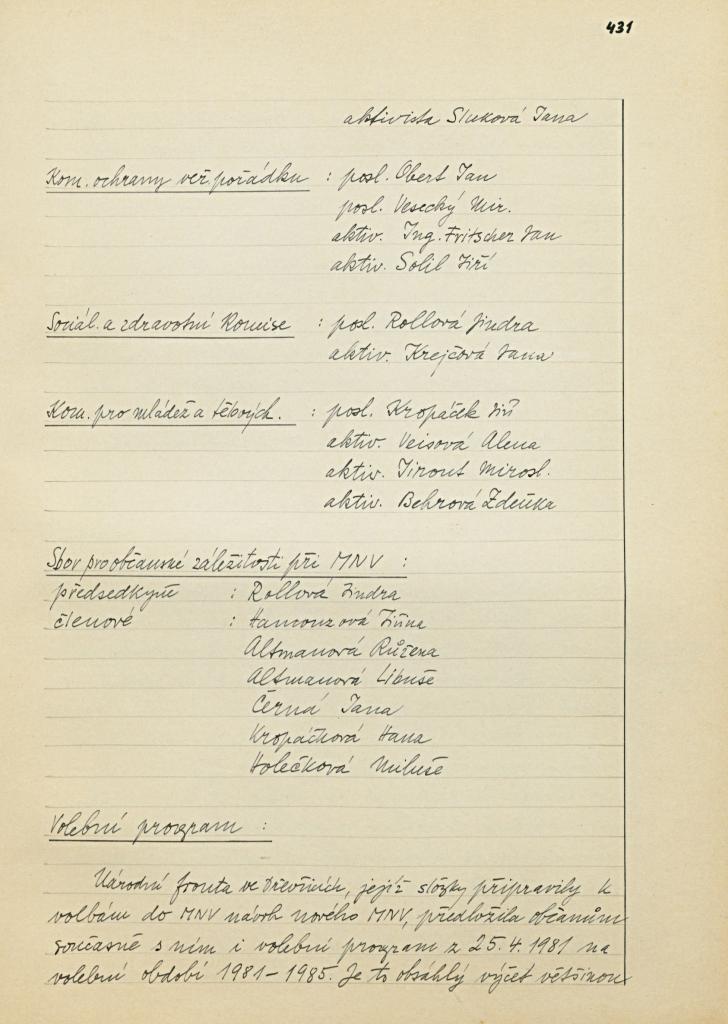 431
aktivista Sluková Jana
Kom. ochrany veř. pořádku : posl. Obert Jan
posl. Vesecký Mir.
aktiv. Ing. Fritscher Jan
aktiv. Solil Jiří
Sociál. a zdravotní komise : posl. Rollová Jindra
aktiv. Krejčová Jana
Kom. pro mládež a těl. : posl. Kropáček Jiří
aktiv. Veisová Alena
aktiv. Jirout Mirosl.
aktiv. Behrová Zdeňka
Sbor pro občanské záležitosti při MNV :
předsedkyně : Rollová Jindra
členové : Hamouzová Jiřina
Altmanová Růžena
Altmanová Libuše
Černá Jana
Kropáčková Hana
Holečková Miluše
Volební program :
Národní fronta ve Dřevčicích, jejíž složky připravily k
volbám do MNV návrh nového MNV, předložila občanům
současně s ním i volební program z 25. 4. 1981 na
volební období 1981 – 1985. Je to obsáhlý výčet většinou